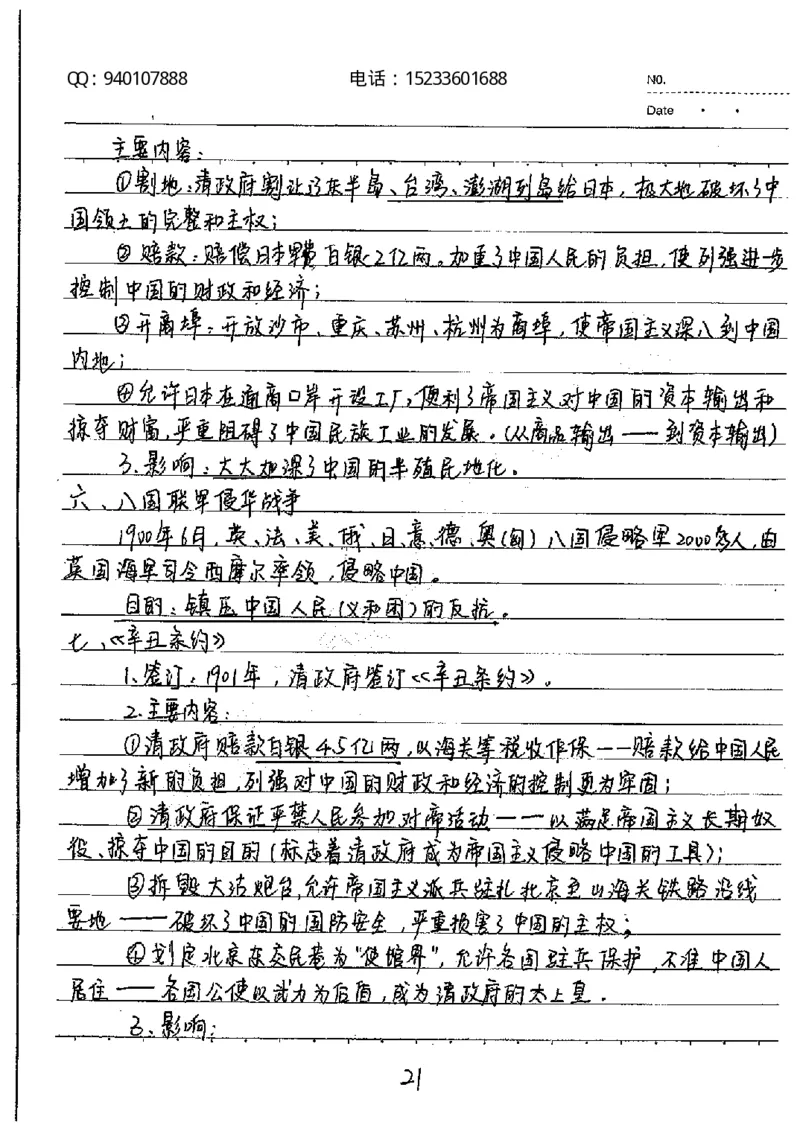 QQ：940107888 电话：15233601688 NO.
Date
主要内容：
①割地：清政府割让辽东半岛、台湾、澎湖列岛给日本，极大地破坏了中
国领土的完整和主权；
② 赔款：赔偿日本军费白银2亿两。加重了中国人民的负担，使列强进一步
控制中国的财政和经济；
③开商埠：开放沙市、重庆、苏州、杭州为商埠，使帝国主义深入到中国
内地；
④允许日本在通商口岸开设工厂，便利了帝国主义对中国的资本输出和
掠夺财富，严重阻碍了中国民族工业的发展。（从商品输出——到资本输出）
3.影响：大大加深了中国的半殖民地化。
六、八国联军侵华战争
1900年6月，英、法、美、俄、日、意、德、奥（匈）八国侵略军2000多人，由
英国海军司令西摩尔率领，侵略中国。
目的：镇压中国人民（义和团）的反抗。
七、《辛丑条约》
1、签订：1901年，清政府签订《辛丑条约》。
2.主要内容：
①清政府赔款白银4.5亿两，以海关等税收作保——赔款给中国人民
增加了新的负担，列强对中国的财政和经济的控制更为牢固；
②清政府保证严禁人民参加对帝活动——以满足帝国主义长期奴
役、掠夺中国的目的（标志着清政府成为帝国主义侵略中国的工具）；
③拆毁大沽炮台，允许帝国主义派兵驻扎北京至山海关铁路沿线
要地——破坏了中国的国防安全，严重损害了中国的主权；
④划定北京东交民巷为“使馆界”，允许各国驻兵保护，不准中国人
居住——各国公使以武力为后盾，成为清政府的太上皇。
3、影响：
21